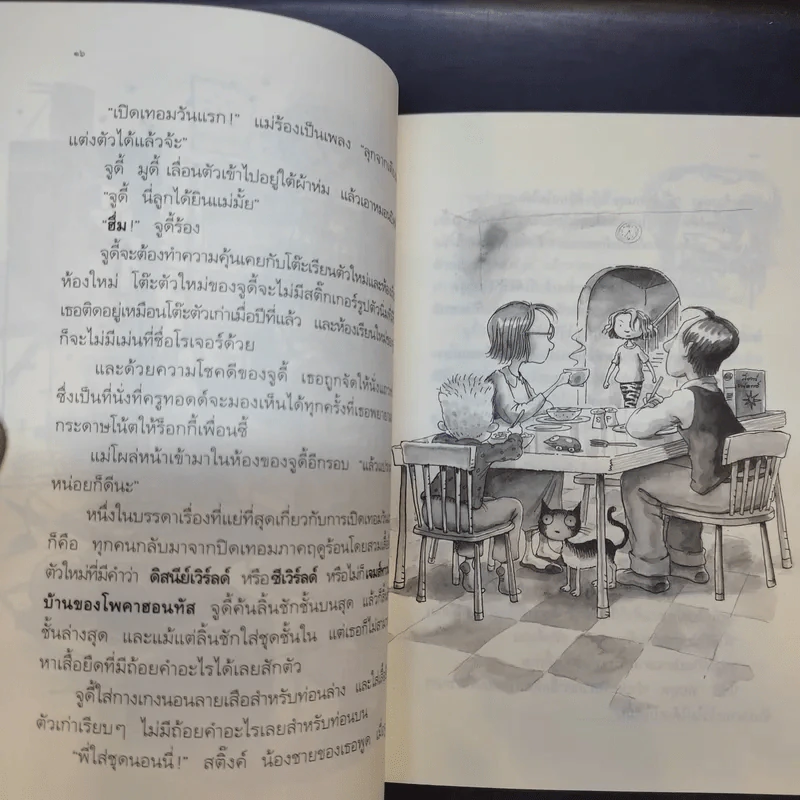 ๑๖
"เปิดเทอมวันแรก!" แม่ร้องเป็นเพลง "ลุกจากเตียง
แต่งตัวได้แล้วจ้ะ"
จูดี้ มูดี้ เลื่อนตัวเข้าไปอยู่ใต้ผ้าห่ม แล้วเอาหมอน
"จูดี้ นี่ลูกได้ยินแม่มั้ย"
"ฮึ่ม!" จูดี้ร้อง
จูดี้จะต้องทำความคุ้นเคยกับโต๊ะเรียนตัวใหม่และ
ห้องใหม่ โต๊ะตัวใหม่ของจูดี้จะไม่มีสติ๊กเกอร์รูปตัวนิ่ม
เธอติดอยู่เหมือนโต๊ะตัวเก่าเมื่อปีที่แล้ว และห้องเรียนใหม่
ก็จะไม่มีเม่นที่ชื่อโรเจอร์ด้วย
และด้วยความโชคดีของจูดี้ เธอถูกจัดให้นั่ง
ซึ่งเป็นที่นั่งที่ครูทอดด์จะมองเห็นได้ทุกครั้งที่เธอพยายาม
กระดาษโน้ตให้ร็อกกี้เพื่อนซี้
แม่โผล่หน้าเข้ามาในห้องของจูดี้อีกรอบ
หน่อยก็ดีนะ"
หนึ่งในบรรดาเรื่องที่แย่ที่สุดเกี่ยวกับการเปิดเทอมวัน
ก็คือ ทุกคนกลับมาจากปิดเทอมภาคฤดูร้อนโดยสวมเสื้อ
ตัวใหม่ที่มีคำว่า ดิสนีย์เวิร์ลด์ หรือซีเวิร์ลด์ หรือไม่ก็
บ้านของโพคาฮอนทัส จูดี้ค้นลิ้นชักชั้นบนสุด แล้วก็
ชั้นล่างสุด และแม้แต่ลิ้นชักใส่ชุดชั้นใน แต่เธอก็ไม่
หาเสื้อยืดที่มีถ้อยคำอะไรได้เลยสักตัว
จูดี้ใส่กางเกงนอนลายเสือสำหรับท่อนล่าง และใส่เสื้อ
ตัวเก่าเรียบๆ ไม่มีถ้อยคำอะไรเลยสำหรับท่อนบน
"พี่ใส่ชุดนอนนี่!" สติ๊งค์ น้องชายของเธอพูด